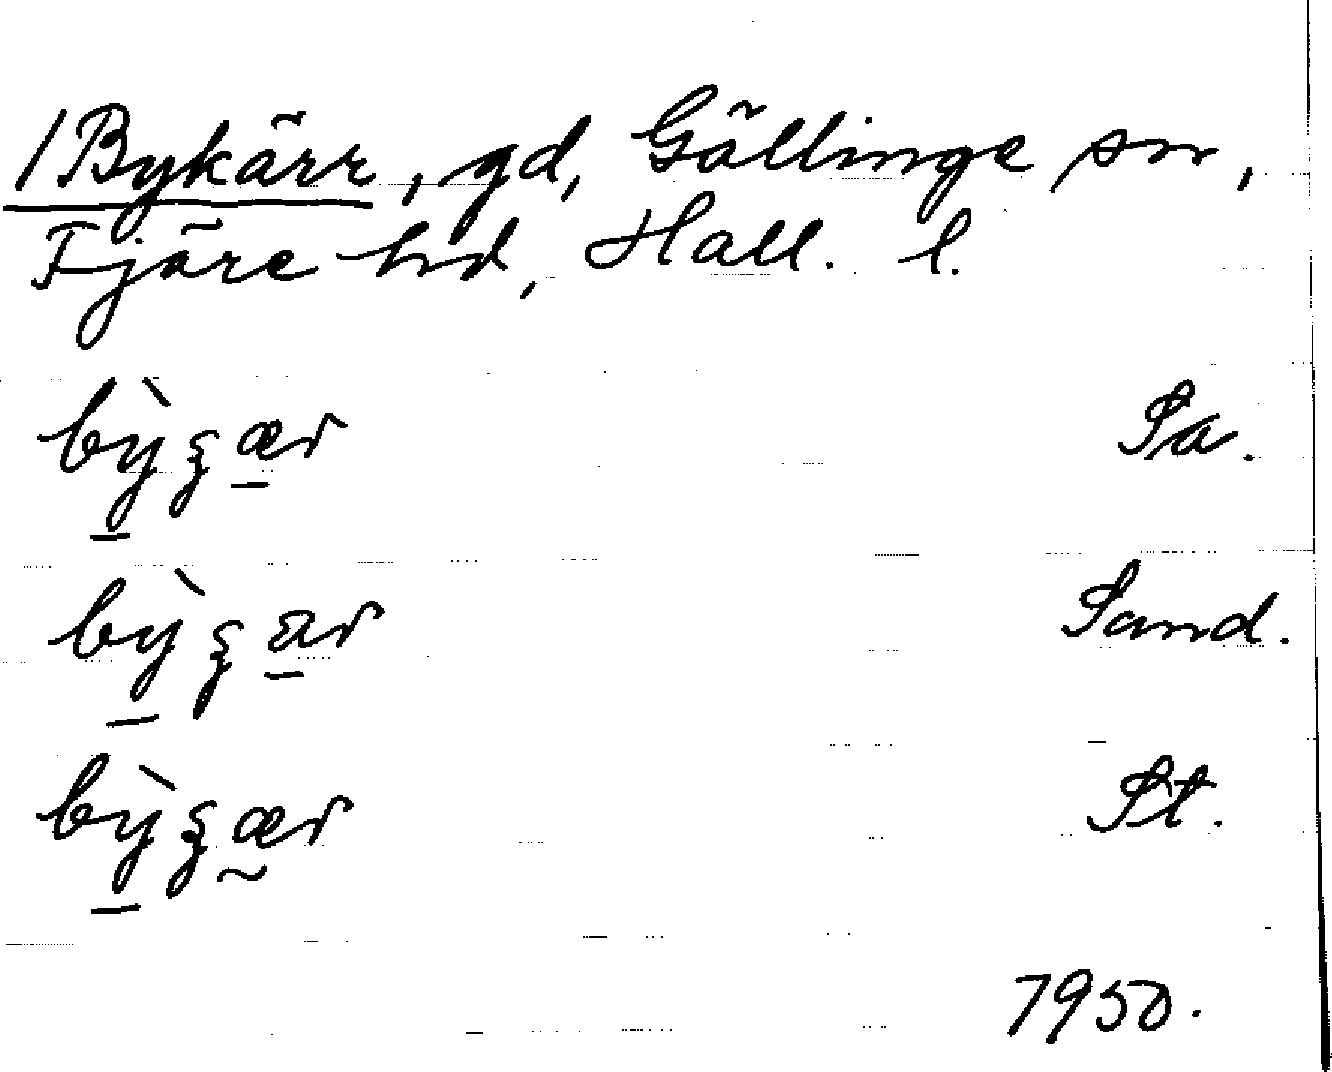 /Bykärr, gd, Gällinge sn,
Fjäre hd, Hall. l.
bỳʒær Sa.
bỳʒar Sand.
bỳʒær St.
1950.